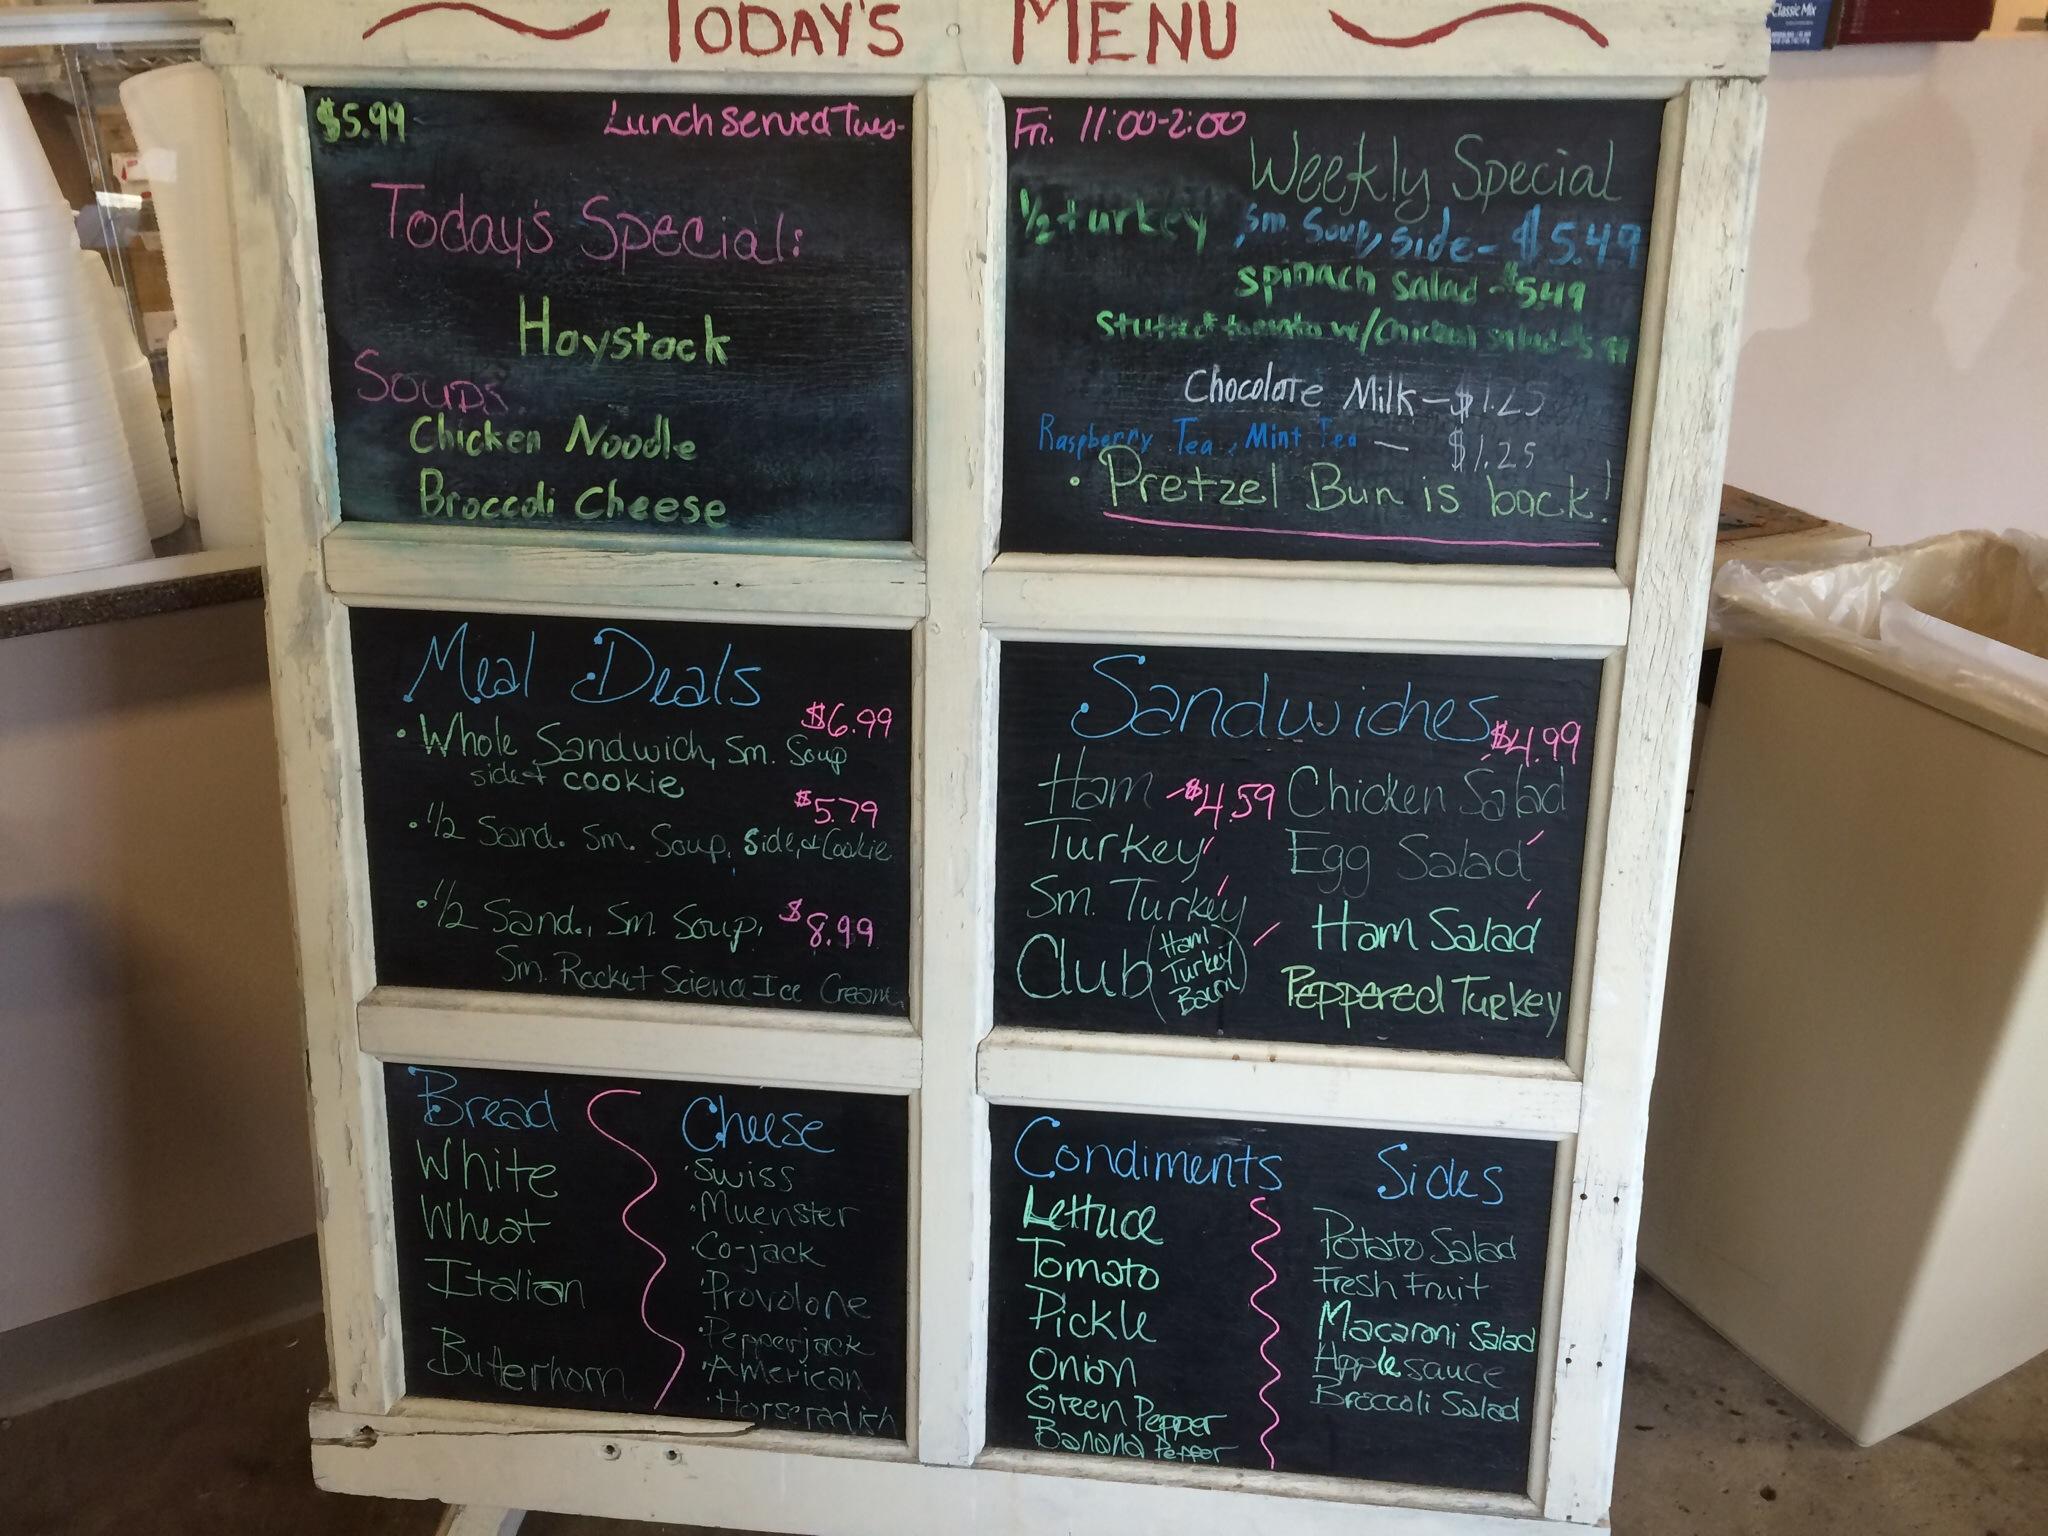 TODAY'S MENU
Classic Mix
$5.99
Lunch served Tues-
Today's Special:
Haystack
Soups
Chicken Noodle
Broccoli Cheese
Fri. 11:00-2:00
Weekly Special
1/2 turkey, Sm. Soup, side - $5.49
spinach salad - $5.49
Stuffed tomato w/ chicken salad
Chocolate Milk - $1.25
Raspberry Tea, Mint Tea - $1.25
• Pretzel Bun is back!
Meal Deals
$6.99
• Whole Sandwich, Sm. Soup
side + cookie
$5.79
• 1/2 Sand. Sm. Soup, Side, + Cookie
• 1/2 Sand., Sm. Soup, $8.99
Sm. Rocket Science Ice Cream
Sandwiches
$4.99
Ham - $4.59
Turkey
Sm. Turkey
Club (Ham Turkey Bacon)
Chicken Salad
Egg Salad
Ham Salad
Peppered Turkey
Bread
White
Wheat
Italian
Butterhorn
Cheese
• Swiss
• Muenster
• Co-jack
• Provolone
• Pepperjack
• American
• Horseradish
Condiments
Lettuce
Tomato
Pickle
Onion
Green Pepper
Banana Pepper
Sides
Potato Salad
Fresh Fruit
Macaroni Salad
Applesauce
Broccoli Salad